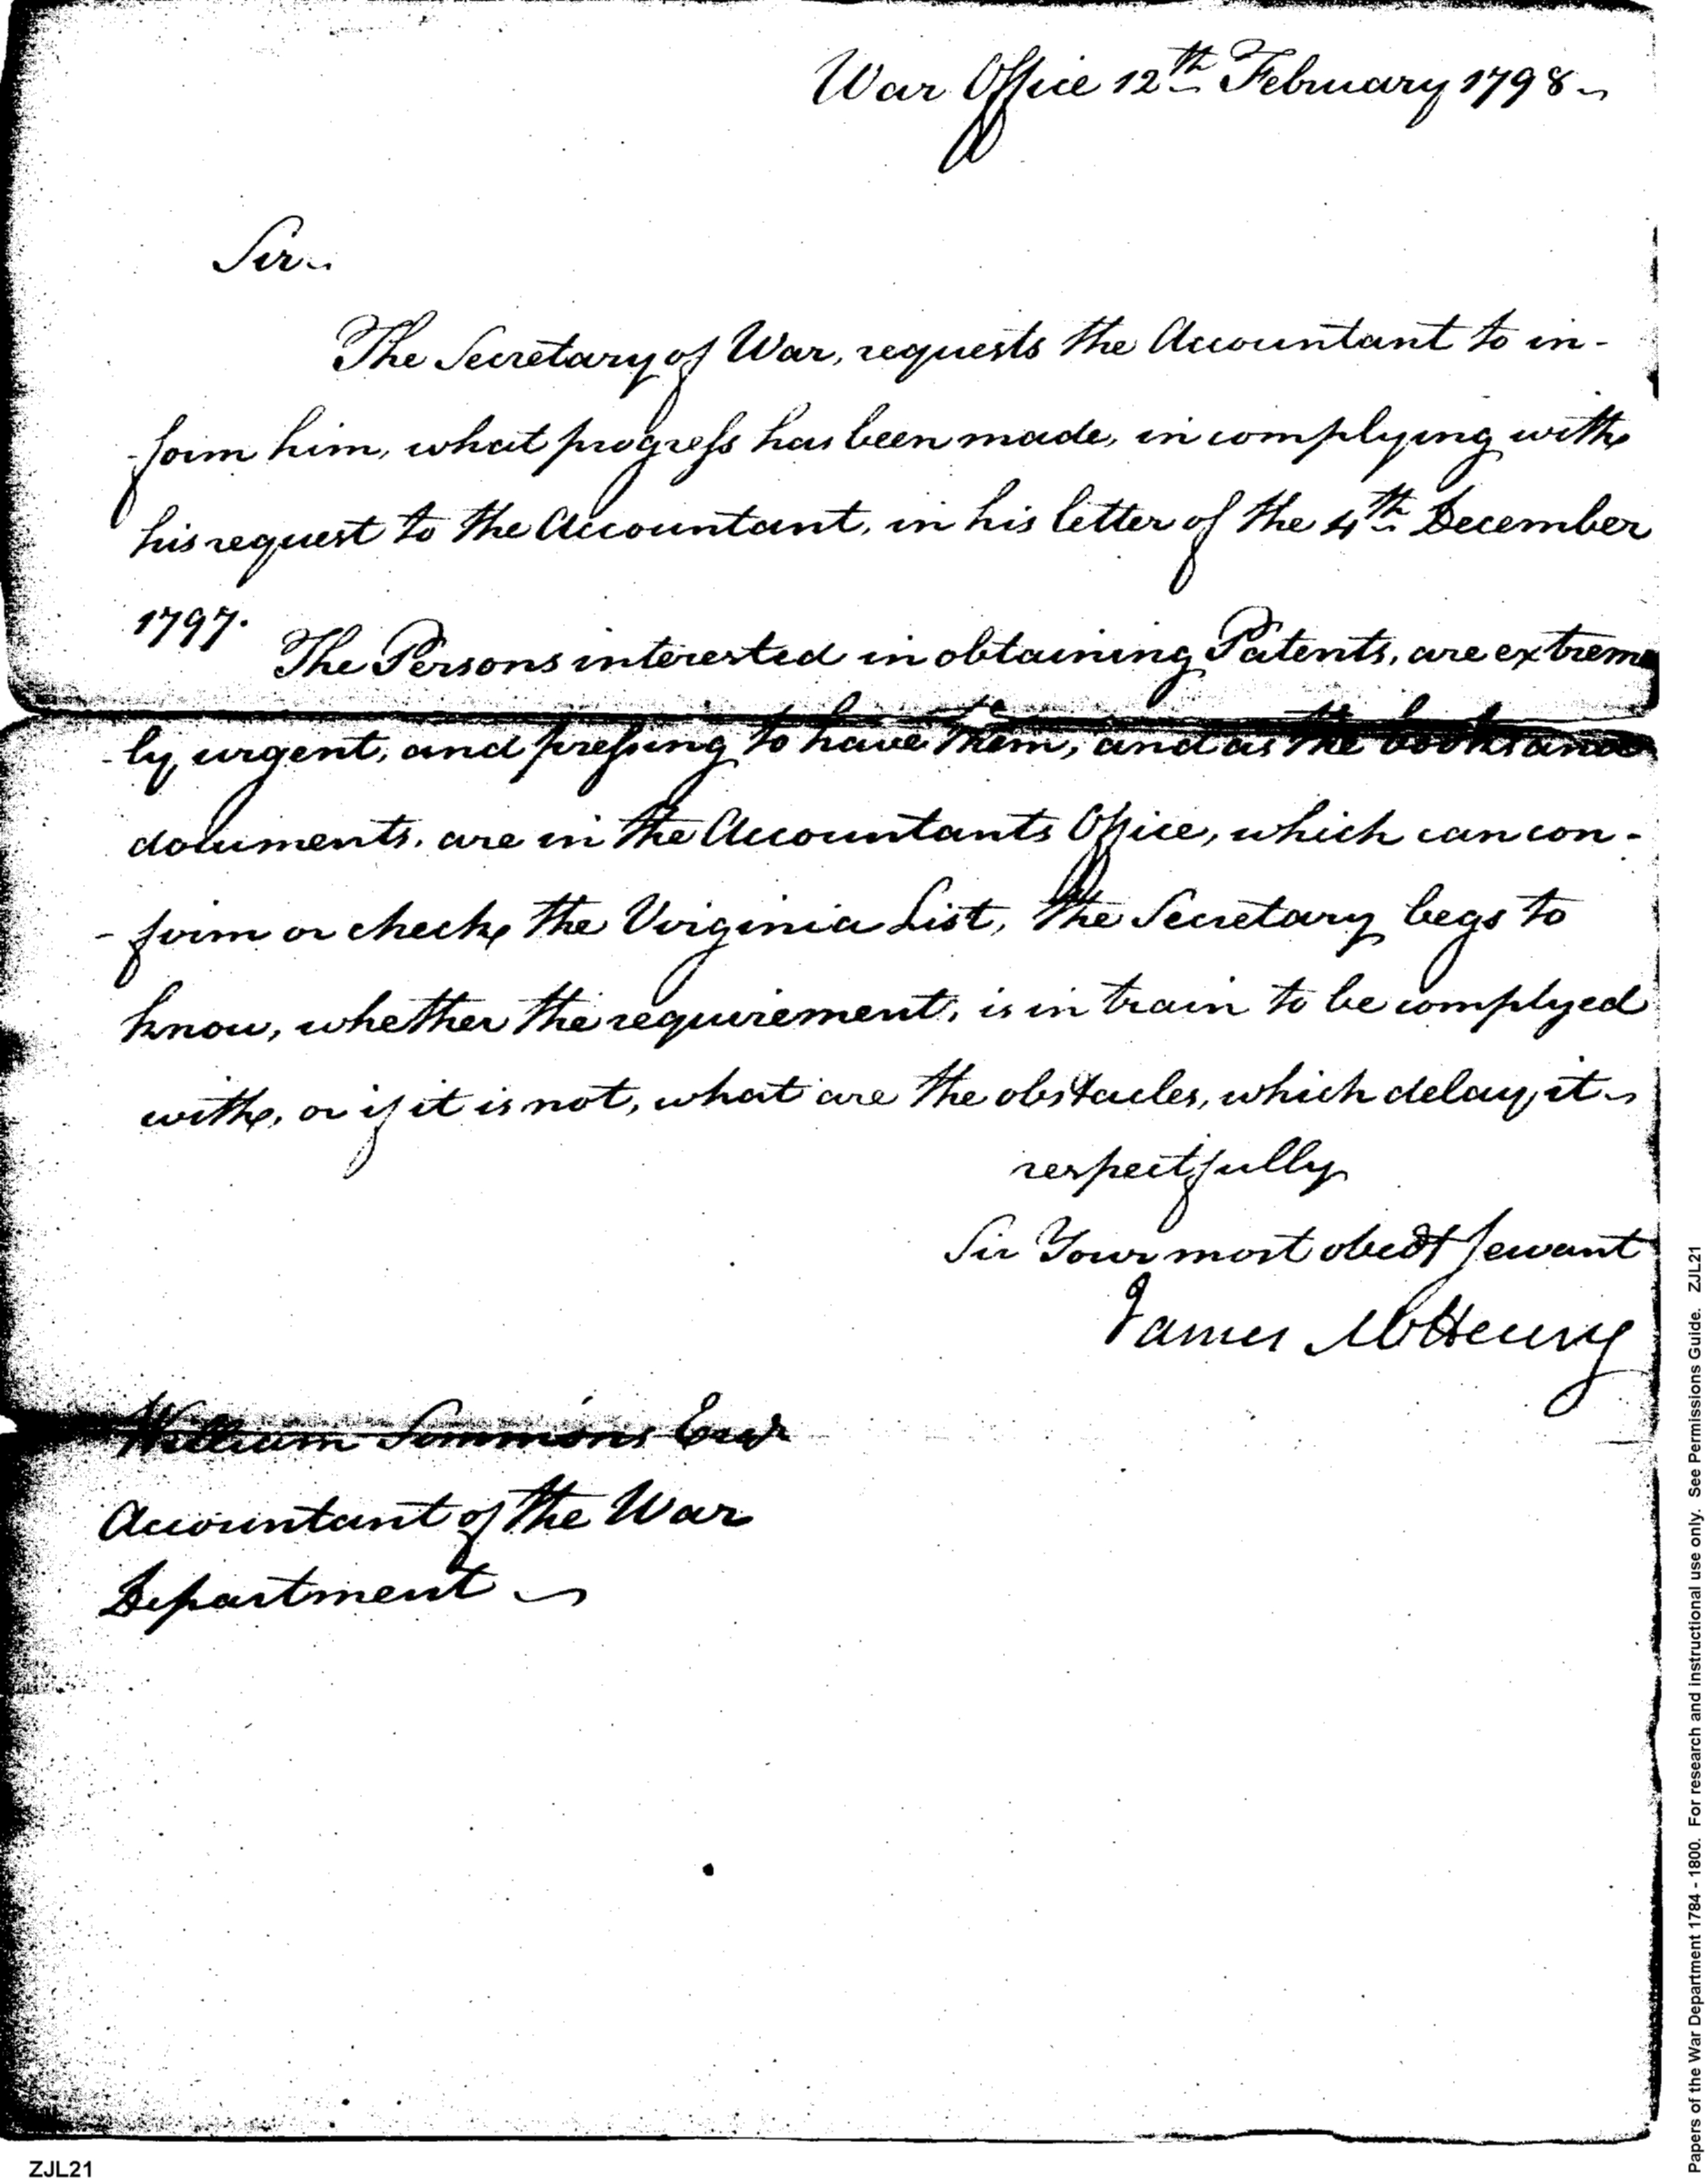 War Office 12th February 1798
Sir
The Secretary of War, requests the Accountant to in-
-form him, what progress has been made, in complying with
his request to the Accountant, in his letter of the 4th December
1797.
The Persons interested in obtaining Patents, are extreme
-ly urgent, and pressing to have them, and as the books and
documents, are in the Accountants Office, which can con-
-firm or check the Virginia List, the Secretary begs to
know, whether the requirement, is in train to be complyed
with, or if it is not, what are the obstacles, which delay it
respectfully
Sir Your most obedt Servant
James McHenry
William Simmons Esqr
Accountant of the War
Department
ZJL21
Papers of the War Department 1784 - 1800. For research and instructional use only. See Permissions Guide. ZJL21